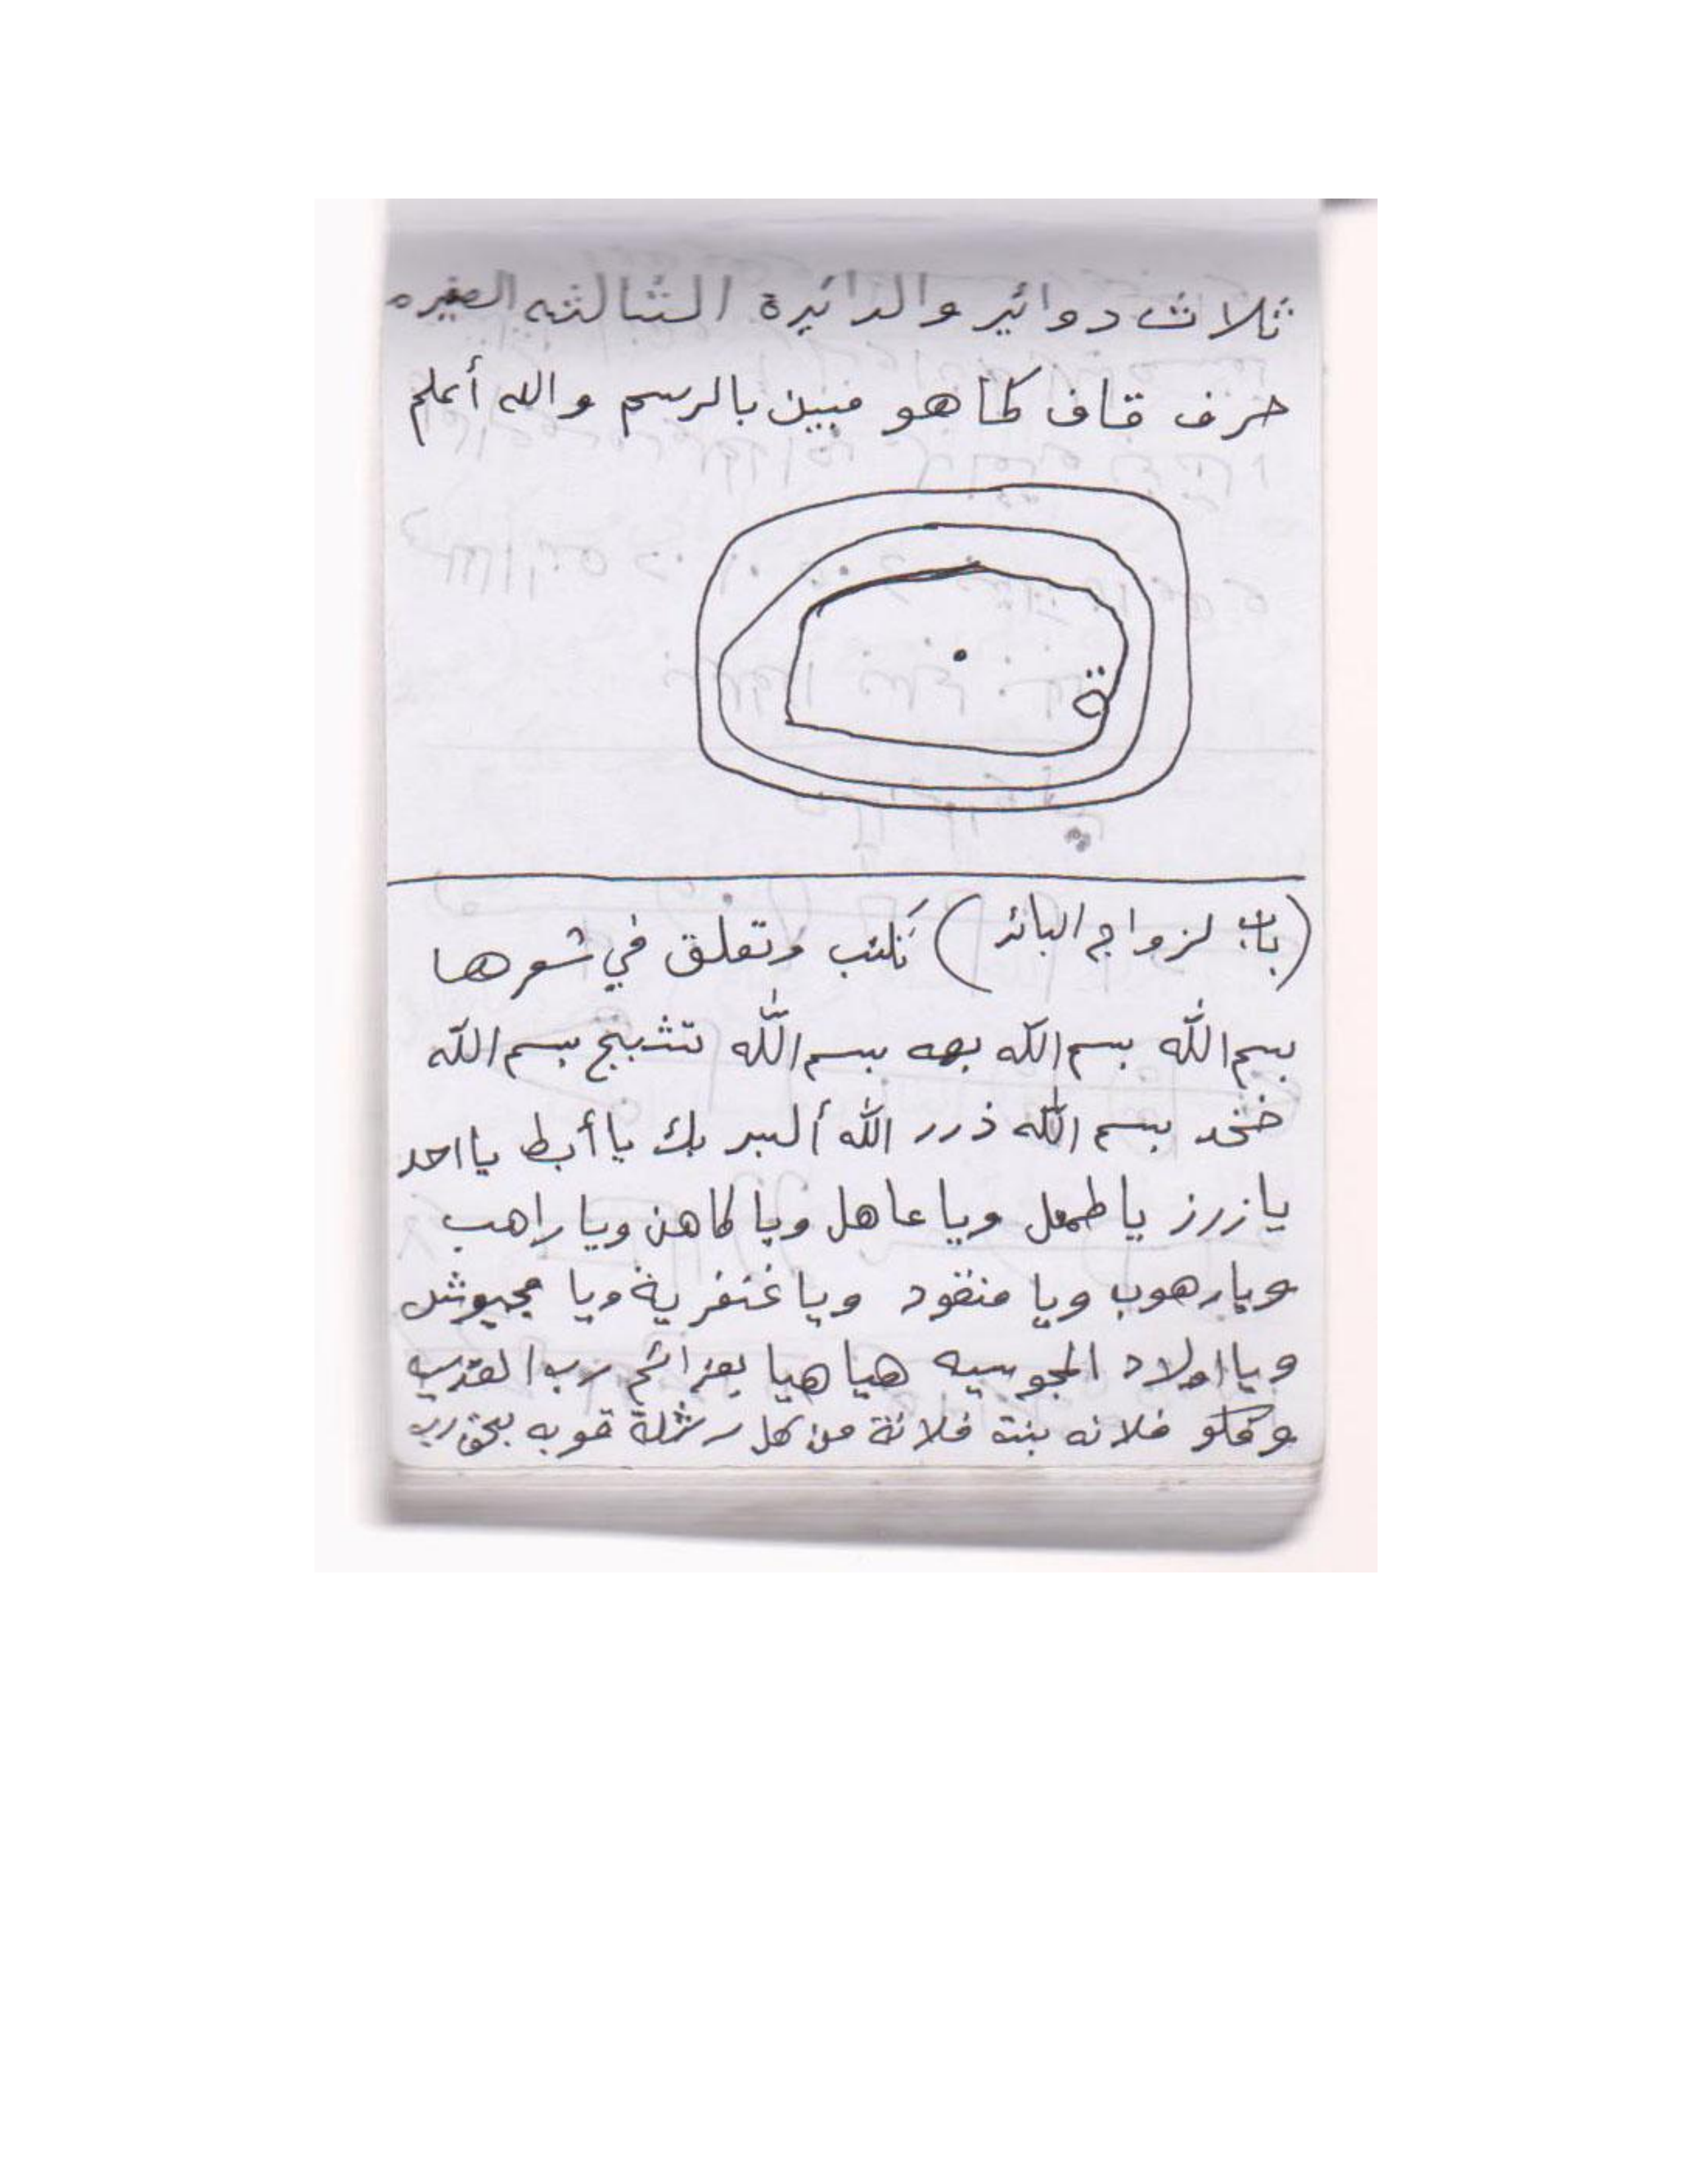 ثلاث دوائير والدائيرة الثالثه الصغيره
حرف قاف كما هو مبين بالرسم والله أعلم
ة
(باب لزواج البائر) تكتب وتعلق في شعرها
بسم الله بسم الله بهه بسم الله تتثبج بسم الله
ضخد بسم الله ذرر الله ألبر بك يا أبط يا احد
يا زرز يا طمعل ويا عاهل ويا كاهن ويا راهب
ويا رهوب ويا منقود ويا غنفرية ويا مجيوش
ويا اولاد المجوسيه هيا هيا بعزائم رب
وفكو فلانه بنتة فلانة من كل بحق رب